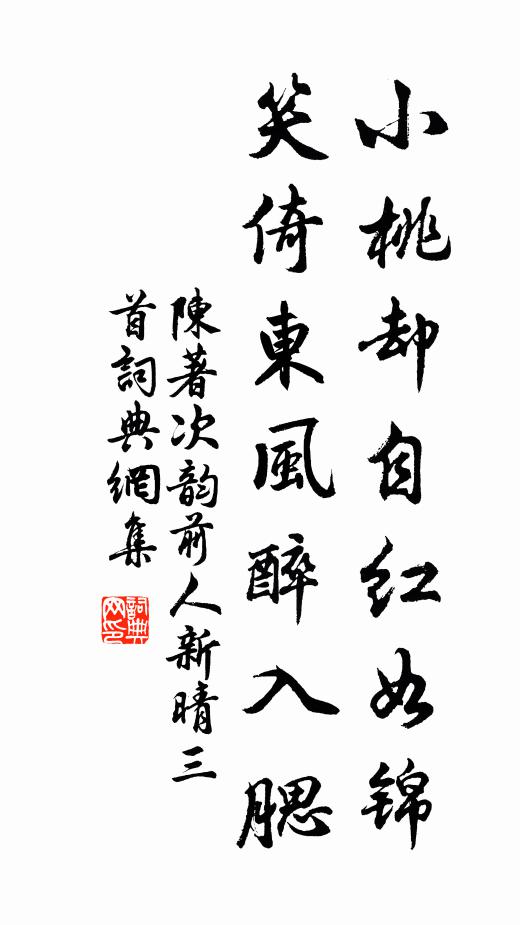 小桃却自红如锦
笑倚東風醉入腮
陳著次韵前人新晴三
首詞典網集
詞典
网印